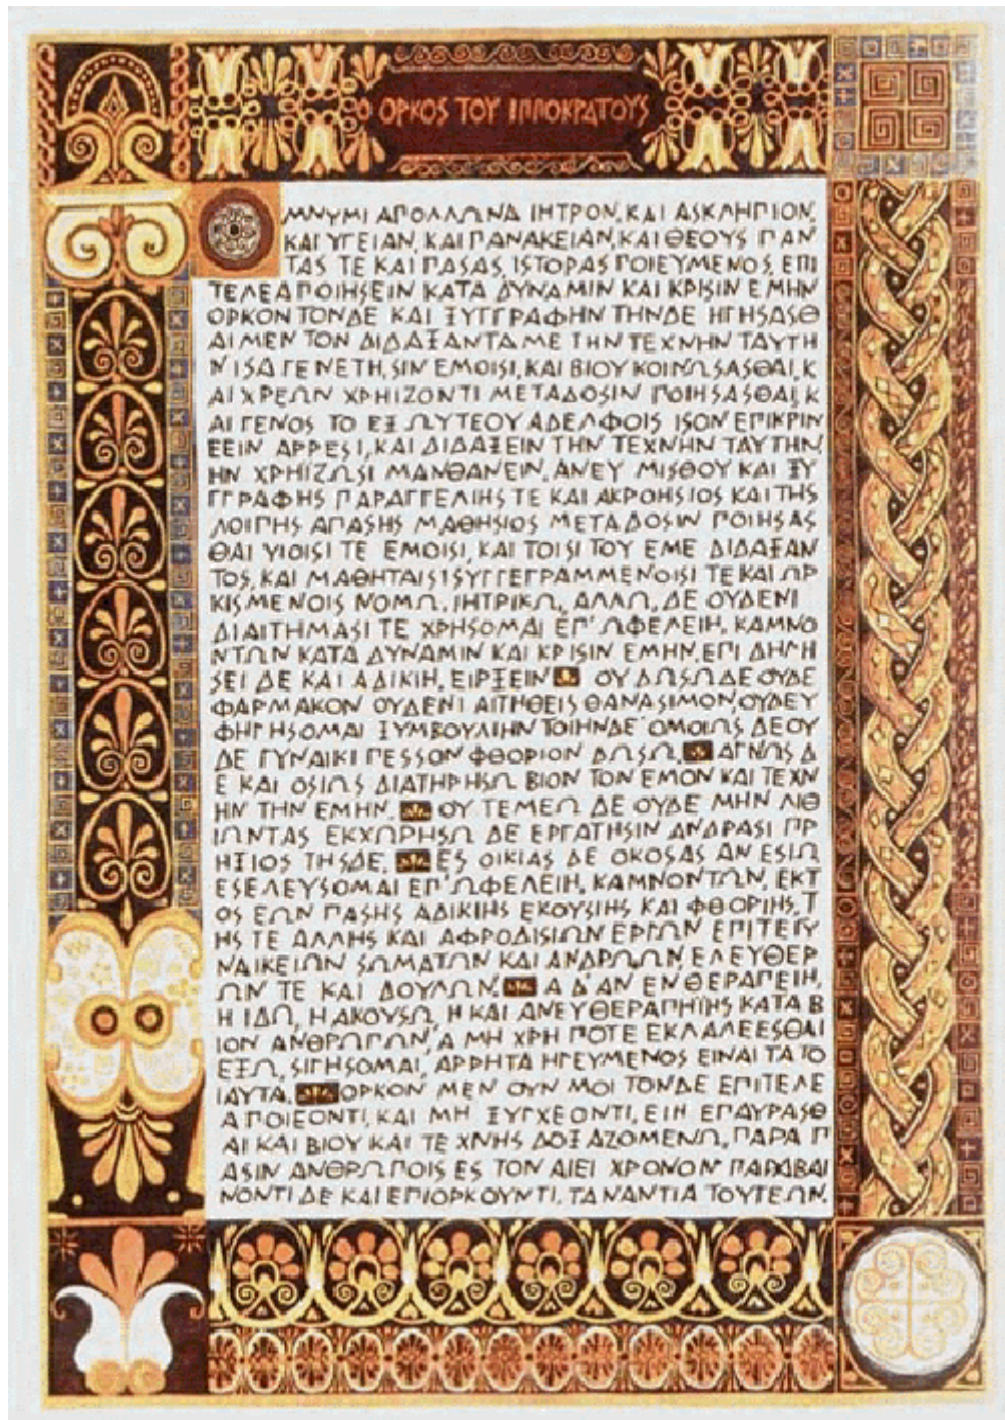 Ο ΟΡΚΟΣ ΤΟΥ ΙΠΠΟΚΡΑΤΟΥΣ
ΟΜΝΥΜΙ ΑΠΟΛΛΩΝΑ ΙΗΤΡΟΝ, ΚΑΙ ΑΣΚΛΗΠΙΟΝ,
ΚΑΙ ΥΓΕΙΑΝ, ΚΑΙ ΠΑΝΑΚΕΙΑΝ, ΚΑΙ ΘΕΟΥΣ ΠΑΝ
ΤΑΣ ΤΕ ΚΑΙ ΠΑΣΑΣ, ΙΣΤΟΡΑΣ ΠΟΙΕΥΜΕΝΟΣ, ΕΠΙ
ΤΕΛΕΑ ΠΟΙΗΣΕΙΝ ΚΑΤΑ ΔΥΝΑΜΙΝ ΚΑΙ ΚΡΙΣΙΝ ΕΜΗΝ
ΟΡΚΟΝ ΤΟΝΔΕ ΚΑΙ ΞΥΓΓΡΑΦΗΝ ΤΗΝΔΕ ΗΓΗΣΑΣΘ
ΑΙ ΜΕΝ ΤΟΝ ΔΙΔΑΞΑΝΤΑ ΜΕ ΤΗΝ ΤΕΧΝΗΝ ΤΑΥΤΗ
Ν ΙΣΑ ΓΕΝΕΤΗ,ΣΙΝ ΕΜΟΙΣΙ, ΚΑΙ ΒΙΟΥ ΚΟΙΝΩΣΑΣΘΑΙ, Κ
ΑΙ ΧΡΕΩΝ ΧΡΗΙΖΟΝΤΙ ΜΕΤΑΔΟΣΙΝ ΠΟΙΗΣΑΣΘΑΙ, Κ
ΑΙ ΓΕΝΟΣ ΤΟ ΕΞ ΩΥΤΕΟΥ ΑΔΕΛΦΟΙΣ ΙΣΟΝ ΕΠΙΚΡΙΝ
ΕΕΙΝ ΑΡΡΕΣΙ, ΚΑΙ ΔΙΔΑΞΕΙΝ ΤΗΝ ΤΕΧΝΗΝ ΤΑΥΤΗΝ,
ΗΝ ΧΡΗΙΖΩΣΙ ΜΑΝΘΑΝΕΙΝ, ΑΝΕΥ ΜΙΣΘΟΥ ΚΑΙ ΞΥ
ΓΓΡΑΦΗΣ ΠΑΡΑΓΓΕΛΙΗΣ ΤΕ ΚΑΙ ΑΚΡΟΗΣΙΟΣ ΚΑΙ ΤΗΣ
ΛΟΙΠΗΣ ΑΠΑΣΗΣ ΜΑΘΗΣΙΟΣ ΜΕΤΑΔΟΣΙΝ ΠΟΙΗΣΑΣ
ΘΑΙ ΥΙΟΙΣΙ ΤΕ ΕΜΟΙΣΙ, ΚΑΙ ΤΟΙΣΙ ΤΟΥ ΕΜΕ ΔΙΔΑΞΑΝ
ΤΟΣ, ΚΑΙ ΜΑΘΗΤΑΙΣΙ ΣΥΓΓΕΓΡΑΜΜΕΝΟΙΣΙ ΤΕ ΚΑΙ ΩΡ
ΚΙΣΜΕΝΟΙΣ ΝΟΜΩ, ΙΗΤΡΙΚΩ, ΑΛΛΩ, ΔΕ ΟΥΔΕΝΙ
ΔΙΑΙΤΗΜΑΣΙ ΤΕ ΧΡΗΣΟΜΑΙ ΕΠ' ΩΦΕΛΕΙΗ, ΚΑΜΝΟ
ΝΤΩΝ ΚΑΤΑ ΔΥΝΑΜΙΝ ΚΑΙ ΚΡΙΣΙΝ ΕΜΗΝ, ΕΠΙ ΔΗΛΗ
ΣΕΙ ΔΕ ΚΑΙ ΑΔΙΚΙΗ, ΕΙΡΞΕΙΝ ΟΥ ΔΩΣΩ ΔΕ ΟΥΔΕ
ΦΑΡΜΑΚΟΝ ΟΥΔΕΝΙ ΑΙΤΗΘΕΙΣ ΘΑΝΑΣΙΜΟΝ, ΟΥΔΕ Υ
ΦΗΓΗΣΟΜΑΙ ΞΥΜΒΟΥΛΙΗΝ ΤΟΙΗΝΔΕ ΟΜΟΙΩΣ ΔΕ ΟΥ
ΔΕ ΓΥΝΑΙΚΙ ΠΕΣΣΟΝ ΦΘΟΡΙΟΝ ΔΩΣΩ. ΑΓΝΩΣ Δ
Ε ΚΑΙ ΟΣΙΩΣ ΔΙΑΤΗΡΗΣΩ ΒΙΟΝ ΤΟΝ ΕΜΟΝ ΚΑΙ ΤΕΧΝ
ΗΝ ΤΗΝ ΕΜΗΝ. ΟΥ ΤΕΜΕΩ ΔΕ ΟΥΔΕ ΜΗΝ ΛΙΘ
ΙΩΝΤΑΣ ΕΚΧΩΡΗΣΩ ΔΕ ΕΡΓΑΤΗΣΙΝ ΑΝΔΡΑΣΙ ΠΡ
ΗΞΙΟΣ ΤΗΣΔΕ. ΕΣ ΟΙΚΙΑΣ ΔΕ ΟΚΟΣΑΣ ΑΝ ΕΣΙΩ
ΕΣΕΛΕΥΣΟΜΑΙ ΕΠ' ΩΦΕΛΕΙΗ, ΚΑΜΝΟΝΤΩΝ, ΕΚΤ
ΟΣ ΕΩΝ ΠΑΣΗΣ ΑΔΙΚΙΗΣ ΕΚΟΥΣΙΗΣ ΚΑΙ ΦΘΟΡΙΗΣ, Τ
ΗΣ ΤΕ ΑΛΛΗΣ ΚΑΙ ΑΦΡΟΔΙΣΙΩΝ ΕΡΓΩΝ ΕΠΙ ΤΕ ΓΥ
ΝΑΙΚΕΙΩΝ ΣΩΜΑΤΩΝ ΚΑΙ ΑΝΔΡΩΩΝ, ΕΛΕΥΘΕΡ
ΩΝ ΤΕ ΚΑΙ ΔΟΥΛΩΝ. Α Δ' ΑΝ ΕΝ ΘΕΡΑΠΕΙΗ,
Η ΙΔΩ, Η ΑΚΟΥΣΩ, Η ΚΑΙ ΑΝΕΥ ΘΕΡΑΠΗΙΗΣ ΚΑΤΑ Β
ΙΟΝ ΑΝΘΡΩΠΩΝ, Α ΜΗ ΧΡΗ ΠΟΤΕ ΕΚΛΑΛΕΕΣΘΑΙ
ΕΞΩ, ΣΙΓΗΣΟΜΑΙ, ΑΡΡΗΤΑ ΗΓΕΥΜΕΝΟΣ ΕΙΝΑΙ ΤΑ ΤΟ
ΙΑΥΤΑ. ΟΡΚΟΝ ΜΕΝ ΟΥΝ ΜΟΙ ΤΟΝΔΕ ΕΠΙΤΕΛΕ
Α ΠΟΙΕΟΝΤΙ, ΚΑΙ ΜΗ ΞΥΓΧΕΟΝΤΙ, ΕΙΗ ΕΠΑΥΡΑΣΘ
ΑΙ ΚΑΙ ΒΙΟΥ ΚΑΙ ΤΕΧΝΗΣ ΔΟΞΑΖΟΜΕΝΩ, ΠΑΡΑ Π
ΑΣΙΝ ΑΝΘΡΩΠΟΙΣ ΕΣ ΤΟΝ ΑΙΕΙ ΧΡΟΝΟΝ ΠΑΡΑΒΑΙ
ΝΟΝΤΙ ΔΕ ΚΑΙ ΕΠΙΟΡΚΟΥΝΤΙ, ΤΑΝΑΝΤΙΑ ΤΟΥΤΕΩΝ.